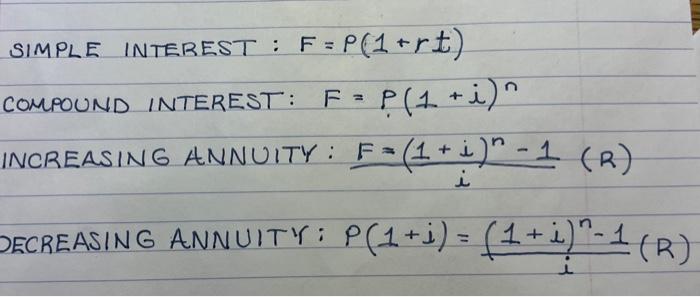 SIMPLE INTEREST : F = P(1 + rt)
COMPOUND INTEREST: F = P(1 + i)^n
INCREASING ANNUITY: F = (1 + i)^n - 1 (R)
i
DECREASING ANNUITY: P(1+i) = (1+i)^n - 1 (R)
i